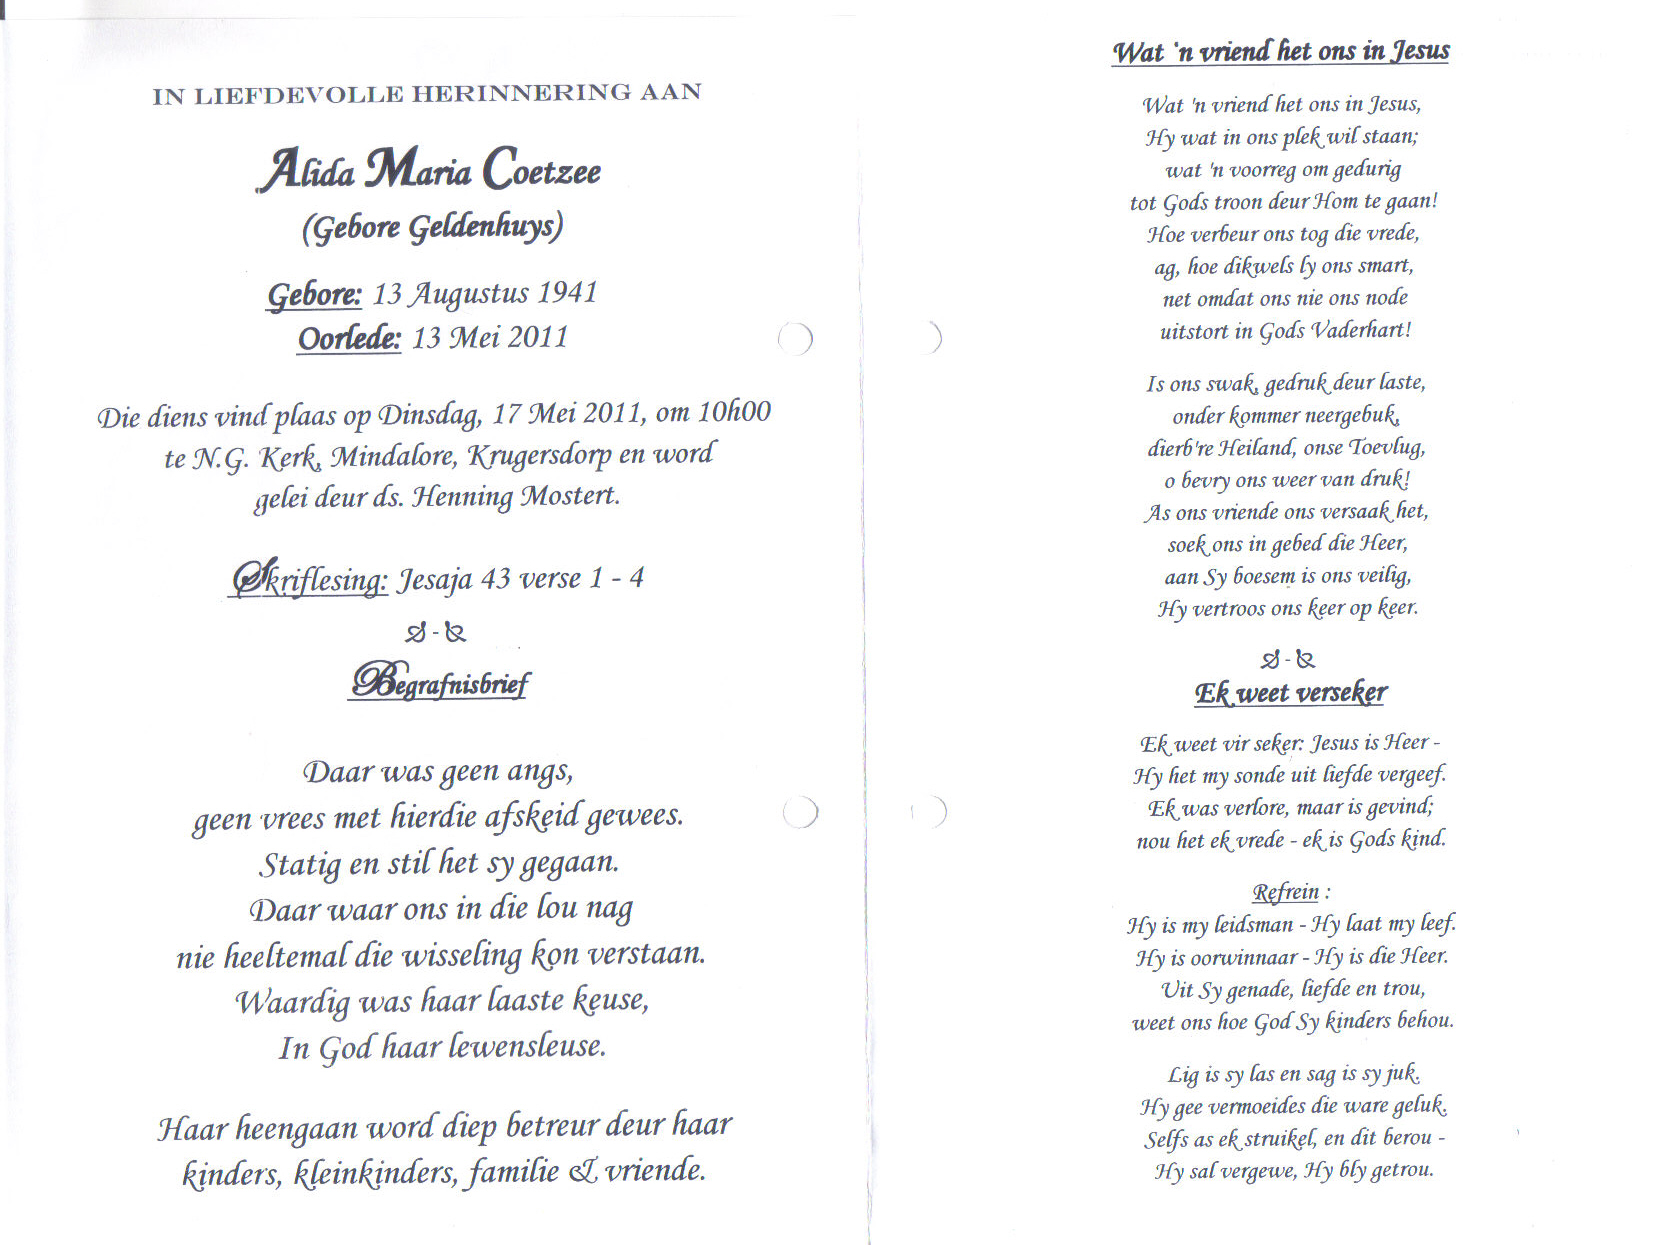 IN LIEFDEVOLLE HERINNERING AAN
Alida Maria Coetzee
(Gebore Geldenhuys)
Gebore: 13 Augustus 1941
Oorlede: 13 Mei 2011
Die diens vind plaas op Dinsdag, 17 Mei 2011, om 10h00
te N.G. Kerk, Mindalore, Krugersdorp en word
gelei deur ds. Henning Mostert.
Skriflesing: Jesaja 43 verse 1 - 4
Begrafnisbrief
Daar was geen angs,
geen vrees met hierdie afskeid gewees.
Statig en stil het sy gegaan.
Daar waar ons in die lou nag
nie heeltemal die wisseling kon verstaan.
Waardig was haar laaste keuse,
In God haar lewensleuse.
Haar heengaan word diep betreur deur haar
kinders, kleinkinders, familie & vriende.
Wat 'n vriend het ons in Jesus
Wat 'n vriend het ons in Jesus,
Hy wat in ons plek wil staan;
wat 'n voorreg om gedurig
tot Gods troon deur Hom te gaan!
Hoe verbeur ons tog die vrede,
ag, hoe dikwels ly ons smart,
net omdat ons nie ons node
uitstort in Gods Vaderhart!
Is ons swak, gedruk deur laste,
onder kommer neergebuk,
dierb're Heiland, onse Toevlug,
o bevry ons weer van druk!
As ons vriende ons versaak het,
soek ons in gebed die Heer,
aan Sy boesem is ons veilig,
Hy vertroos ons keer op keer.
Ek weet verseker
Ek weet vir seker: Jesus is Heer -
Hy het my sonde uit liefde vergeef.
Ek was verlore, maar is gevind;
nou het ek vrede - ek is Gods kind.
Refrein :
Hy is my leidsman - Hy laat my leef.
Hy is oorwinnaar - Hy is die Heer.
Uit Sy genade, liefde en trou,
weet ons hoe God Sy kinders behou.
Lig is sy las en sag is sy juk.
Hy gee vermoeides die ware geluk.
Selfs as ek struikel, en dit berou -
Hy sal vergewe, Hy bly getrou.